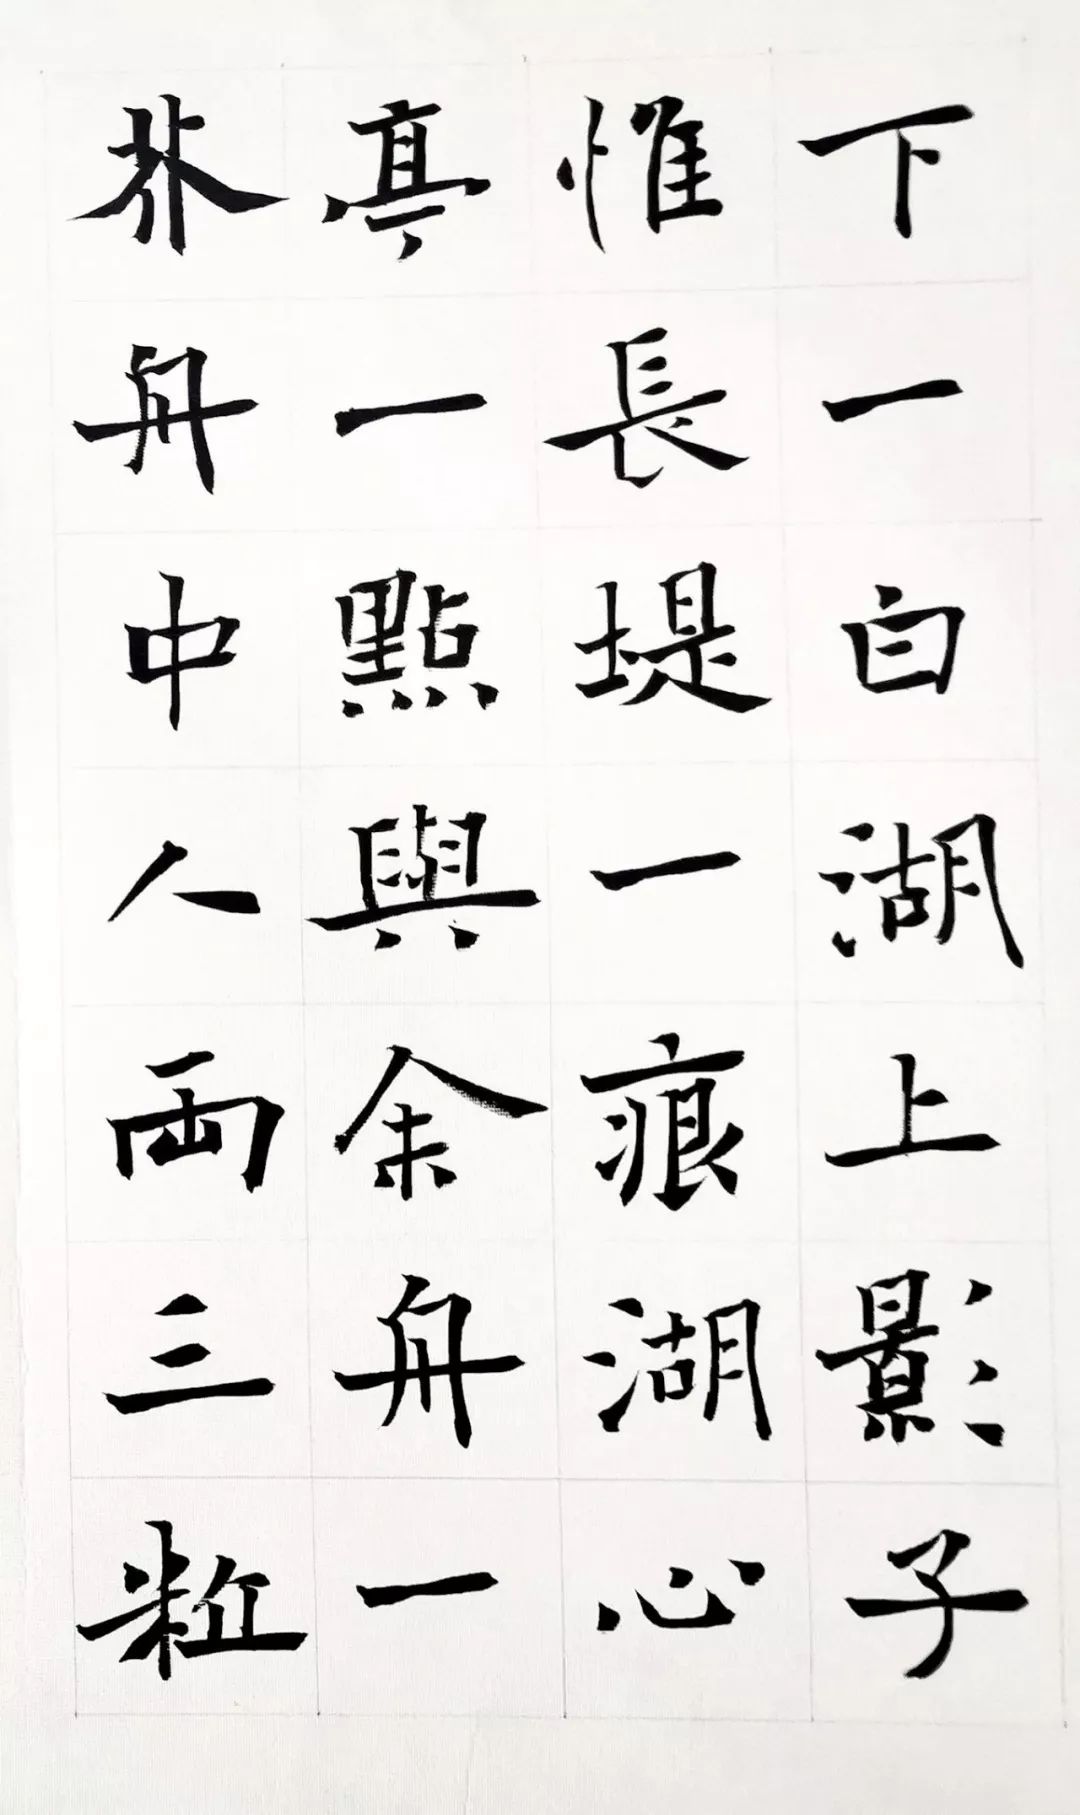 下一白湖上影子
惟長堤一痕湖心
亭一點與余舟一
芥舟中人兩三粒